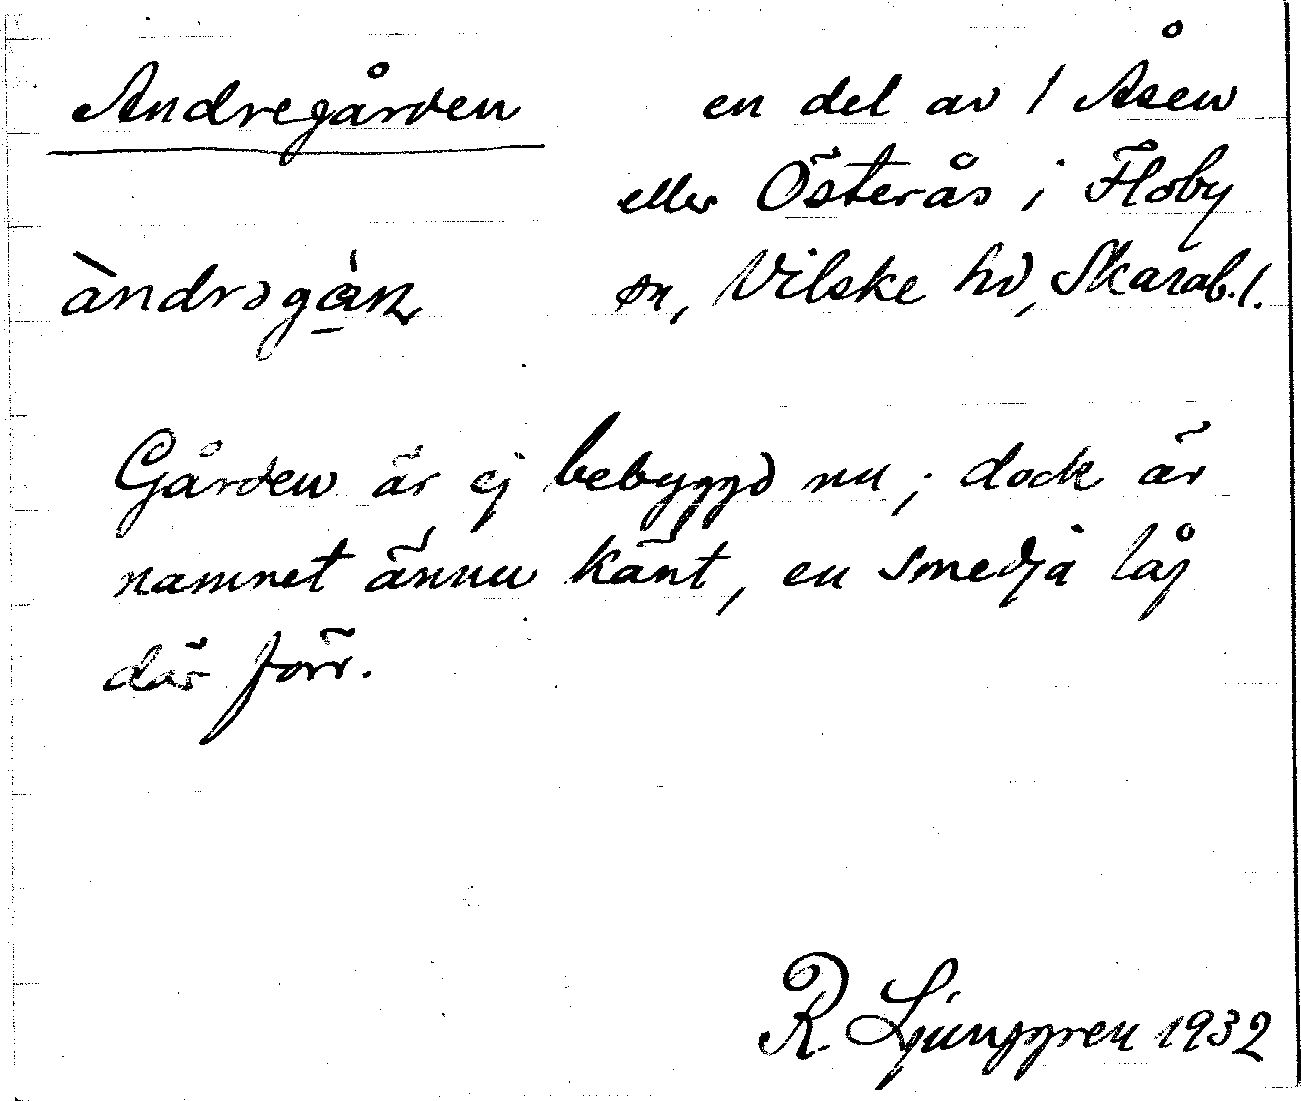 Andregården en del av 1 Åsen
eller Österås i Floby
sn, Vilske hd, Skarab. l.
Gården är ej bebyggd nu; dock är
namnet ännu känt, en smedja låg
där förr.
R. Ljunggren 1932